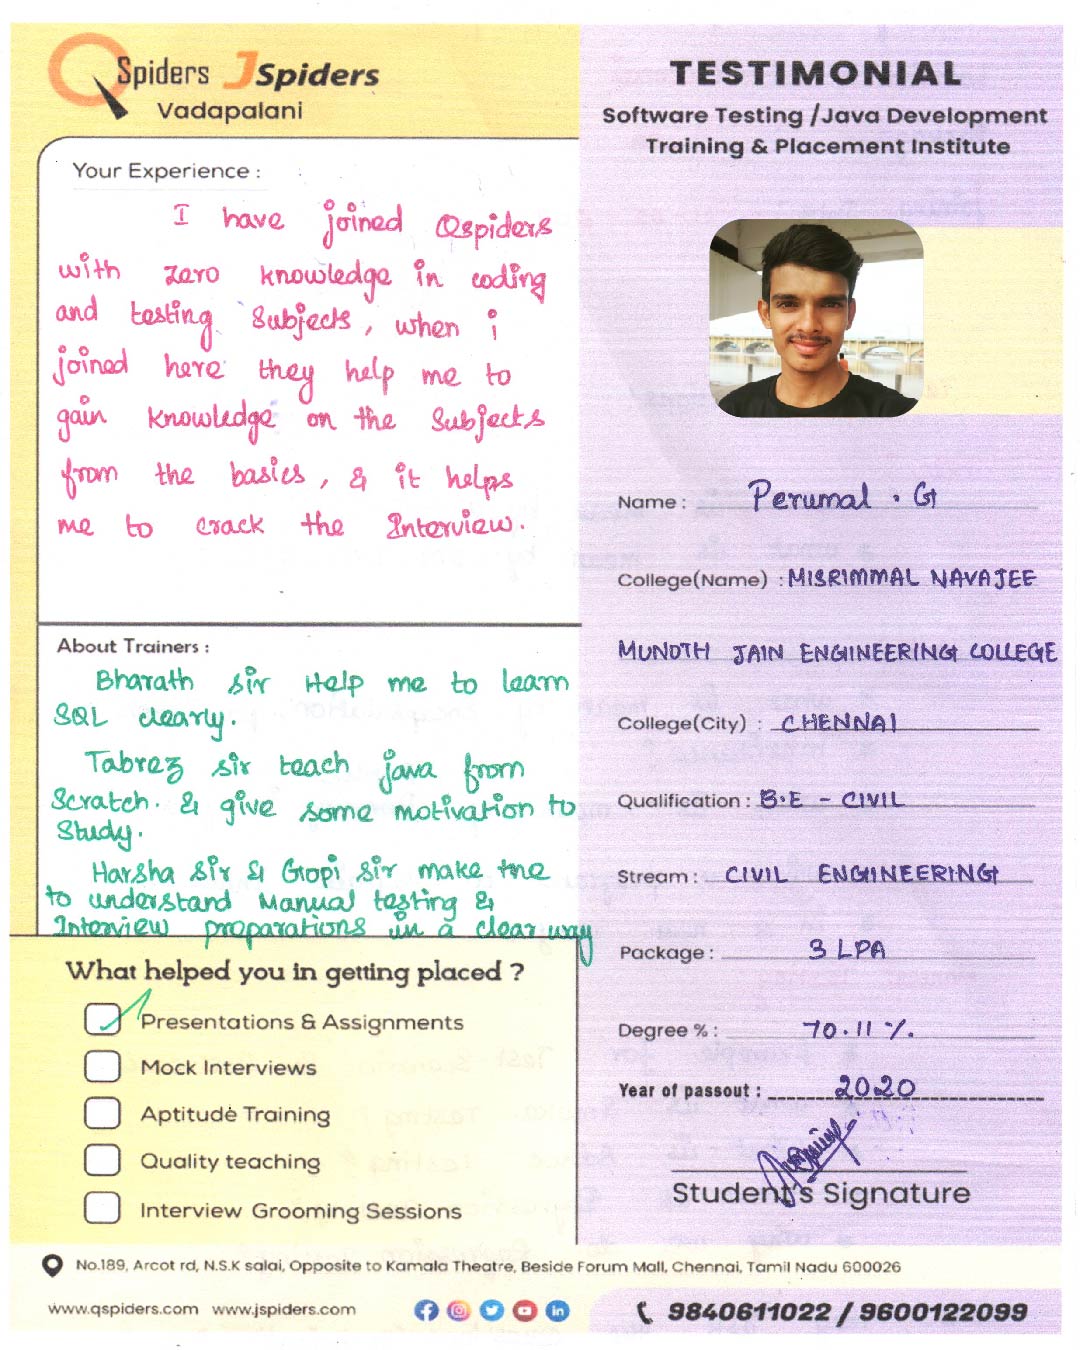 QSpiders JSpiders
Vadapalani
Your Experience :
I have joined Qspiders
with zero knowledge in coding
and testing Subjects, when i
joined here they help me to
gain knowledge on the Subjects
from the basics, & it helps
me to crack the Interview.
About Trainers :
Bharath sir Help me to learn
SQL clearly.
Tabrez sir teach java from
Scratch. & give some motivation to
Study.
Harsha sir & Gopi sir make me
to understand Manual testing &
Interview preparations in a clear way
What helped you in getting placed ?
Presentations & Assignments
Mock Interviews
Aptitude Training
Quality teaching
Interview Grooming Sessions
TESTIMONIAL
Software Testing /Java Development
Training & Placement Institute
Name : Perumal . G
College(Name) : MISRIMMAL NAVAJEE
MUNOTH JAIN ENGINEERING COLLEGE
College(City) : CHENNAI
Qualification : B.E - CIVIL
Stream : CIVIL ENGINEERING
Package : 3 LPA
Degree % : 70.11 %.
Year of passout : 2020
Student's Signature
No.189, Arcot rd, N.S.K salai, Opposite to Kamala Theatre, Beside Forum Mall, Chennai, Tamil Nadu 600026
www.qspiders.com www.jspiders.com
9840611022 / 9600122099